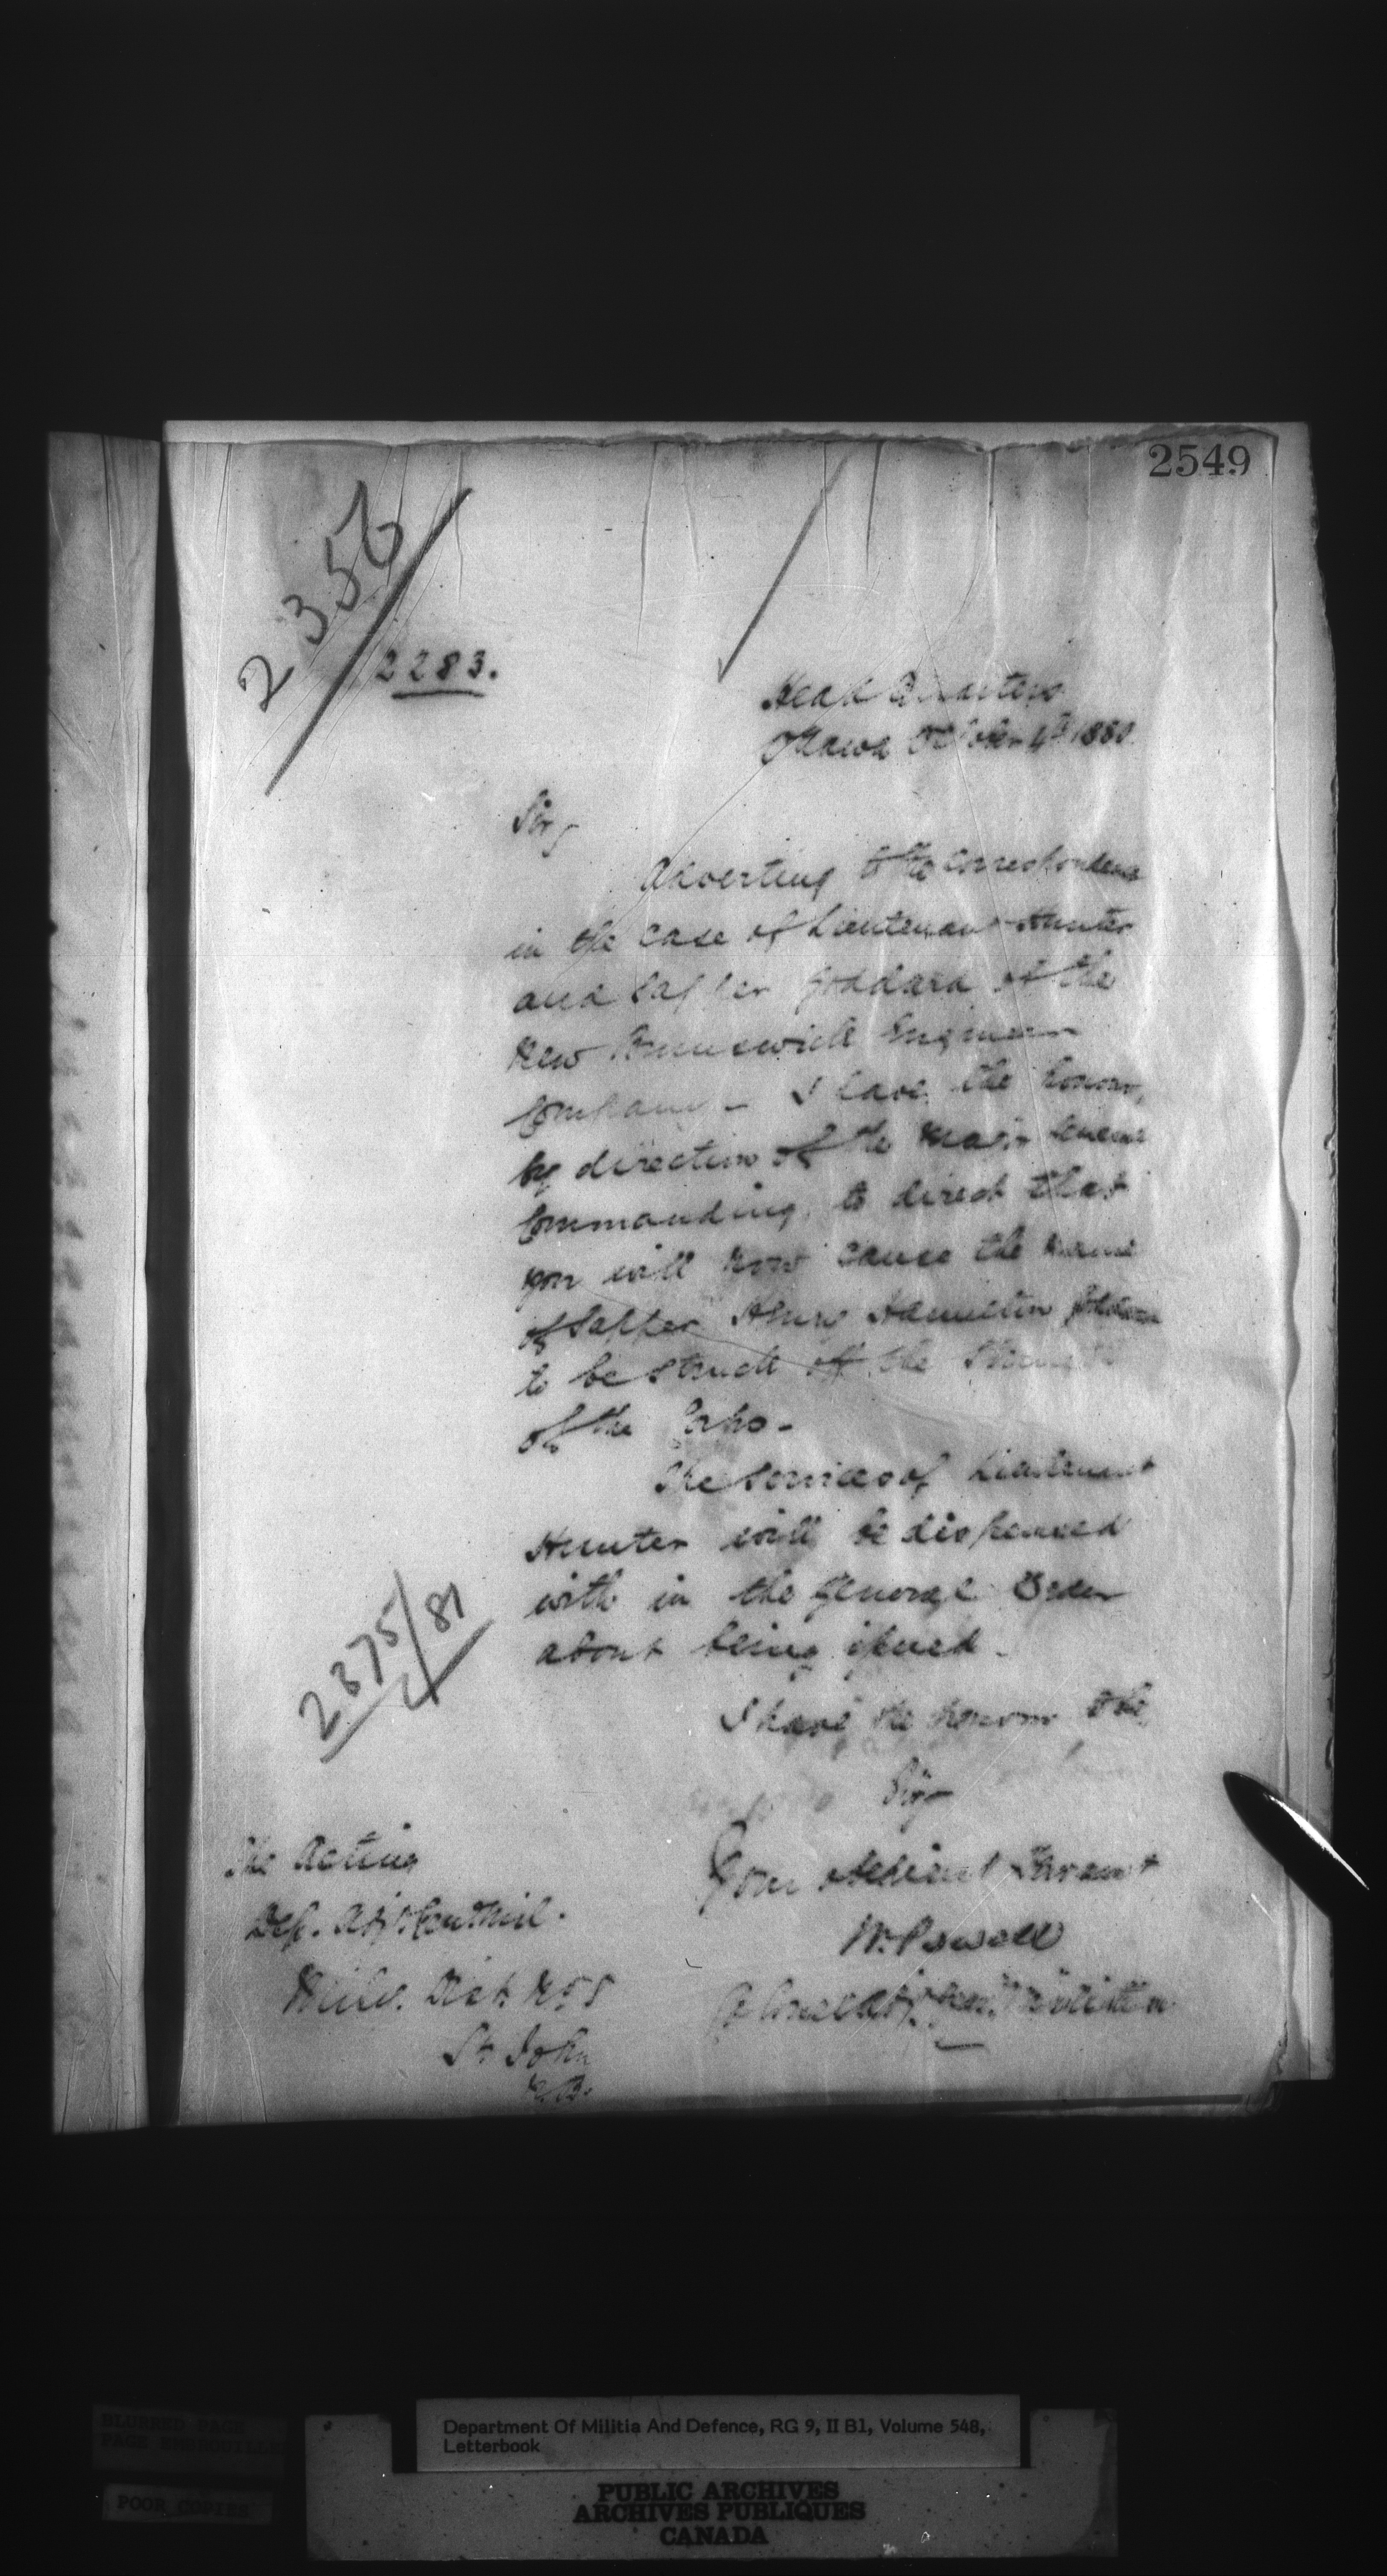 2549
2356
2283.
Head Quarters
Ottawa October 4th 1880
Sir,
Adverting to the correspondence
in the case of Lieutenant Hunter
and Sapper Goddard of the
New Brunswick Engineer
Company - I have the honour,
by direction of the Major General
Commanding, to direct that
you will now cause the name
of Sapper Henry Hamilton Goddard
to be struck off the Strength
of the Corps -
The services of Lieutenant
Hunter will be dispensed
with in the General Order
about being issued -
2375/81
I have the honour to be,
Sir
Your obedient Servant
W. Powell
Colonel Adjt. Genl. Militia
The Acting
Dep. Adjt. Genl. Mil.
Mily. Dist. No. 8
St John
N.B.
Department Of Militia And Defence, RG 9, II B1, Volume 548,
Letterbook
BLURRED PAGE
PAGE EMBROUILLEE
POOR COPIES
PUBLIC ARCHIVES
ARCHIVES PUBLIQUES
CANADA